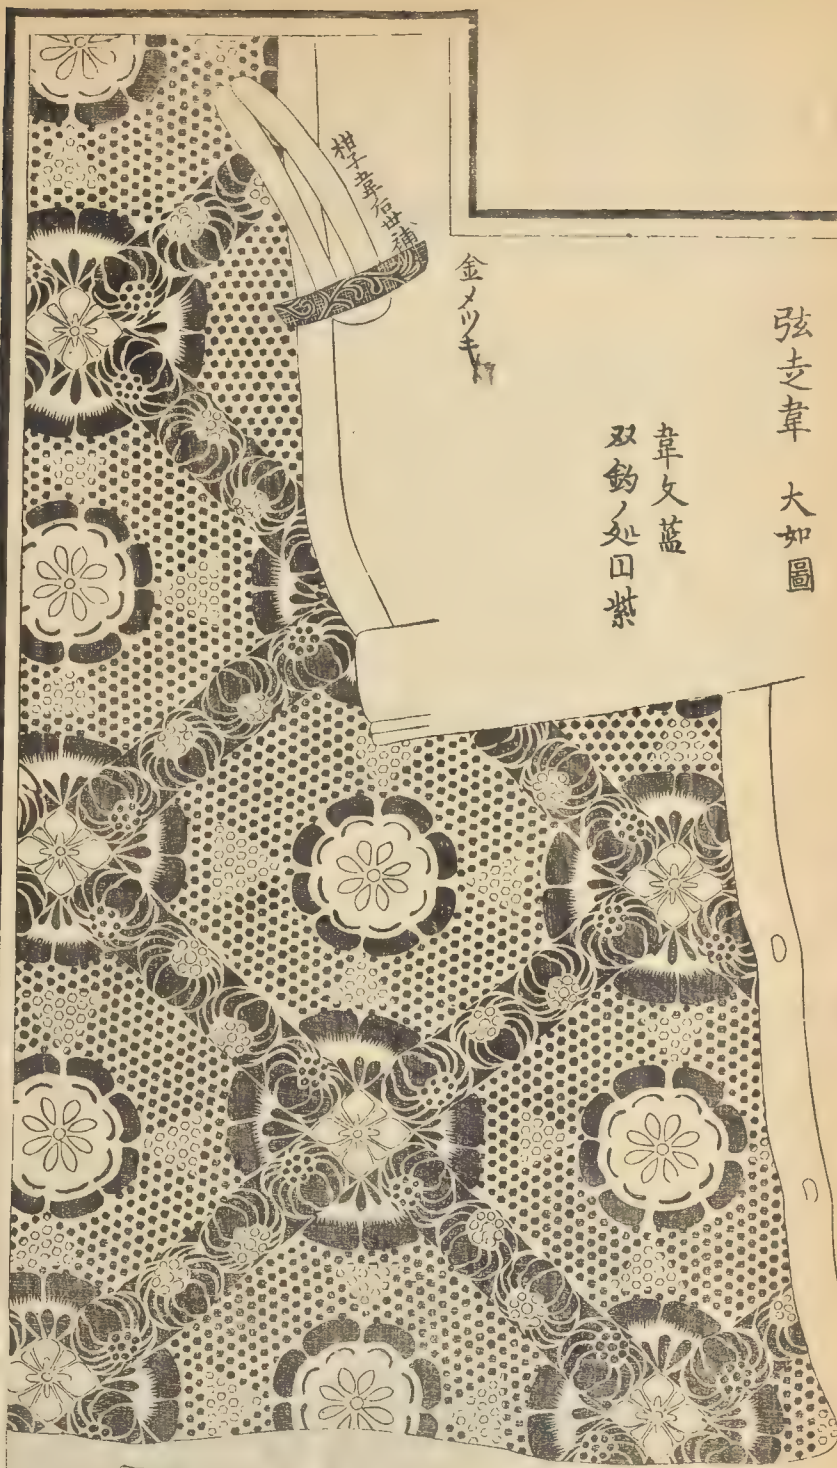 弦走韋 大如圖
韋文藍
双鈎ノ処田紫
金メツキ
柑子韋后世補